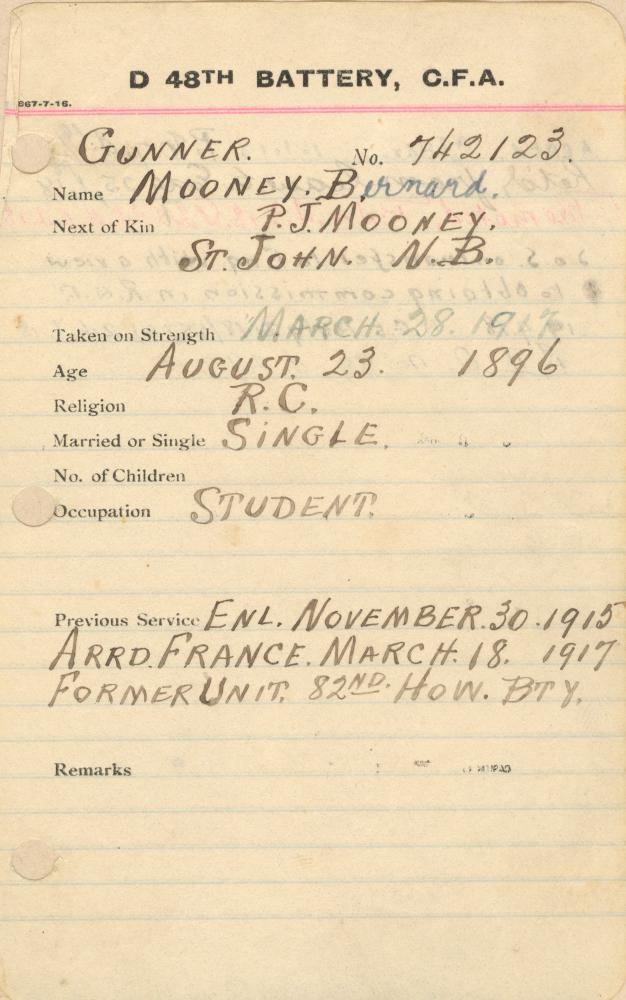 D 48TH BATTERY, C.F.A.
867-7-16.
GUNNER. No. 742123.
Name MOONEY. Bernard.
Next of Kin P.J. MOONEY.
ST. JOHN. N.B.
Taken on Strength MARCH. 28. 1917.
Age AUGUST. 23. 1896
Religion R.C.
Married or Single SINGLE.
No. of Children
Occupation STUDENT.
Previous Service ENL. NOVEMBER. 30. 1915
ARRD. FRANCE. MARCH. 18. 1917
FORMER UNIT. 82ND. HOW. BTY.
Remarks